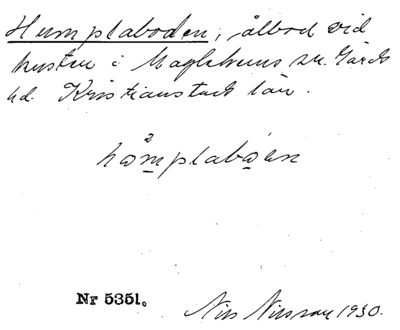 Humplaboden, ålbod vid
kusten i Maglehems sn. Gärds
hd. Kristianstads län.
Nr 5351.
Nils Nilsson 1930.